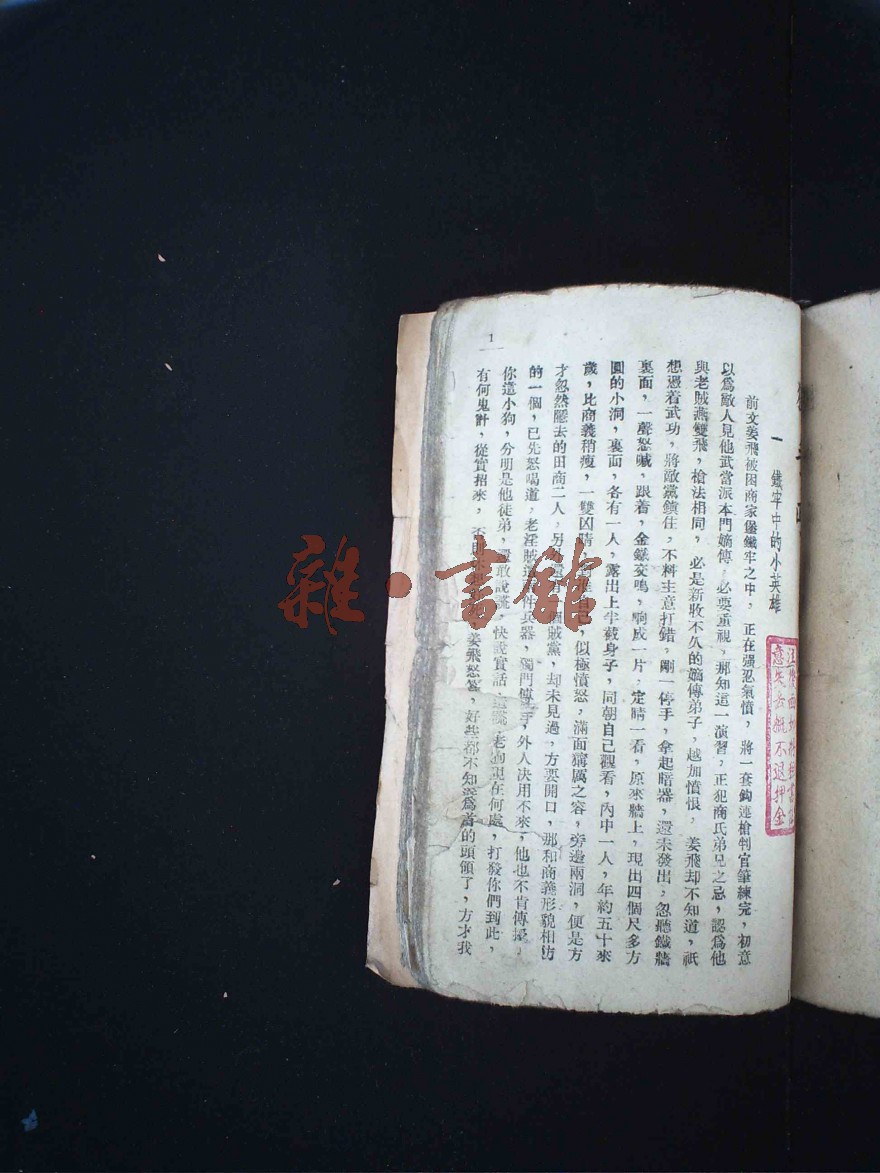 一 鐵牢中的小英雄
前文姜飛被困商家堡鐵牢之中，正在强忍氣憤，將一套鈎連槍判官筆練完，初意
以爲敵人見他武當派本門嫡傳，必要重視，那知這一演習，正犯商氏弟兄之忌，認爲他
與老賊燕雙飛，槍法相同，必是新收不久的嫡傳弟子，越加憤恨，姜飛却不知道，祇
想憑着武功，將敵黨鎮住，不料主意打錯，剛一停手，拿起暗器，還未發出，忽聽鐵牆
裏面，一聲怒喊，跟着，金鐵交鳴，响成一片，定睛一看，原來牆上，現出四個尺多方
圓的小洞，裏面，各有一人，露出上半截身子，同朝自己觀看，內中一人，年約五十來
歲，比商義稍瘦，一雙凶睛，自己，似極憤怒，滿面獰厲之容，旁邊兩洞，便是方
才忽然隱去的田商二人，另賊黨，却未見過，方要開口，那和商義形貌相彷
的一個，已先怒喝道，老淫賊兵器，獨門傳手，外人決用不來，他也不肯傳授，
你這小狗，分明是他徒弟，還敢說謊，快說實話，老狗現在何處，打發你們到此，
有何鬼計，從實招來，姜飛怒駡，好些都不知爲首的頭領了，方才我
1
注意
押金
雜·書館